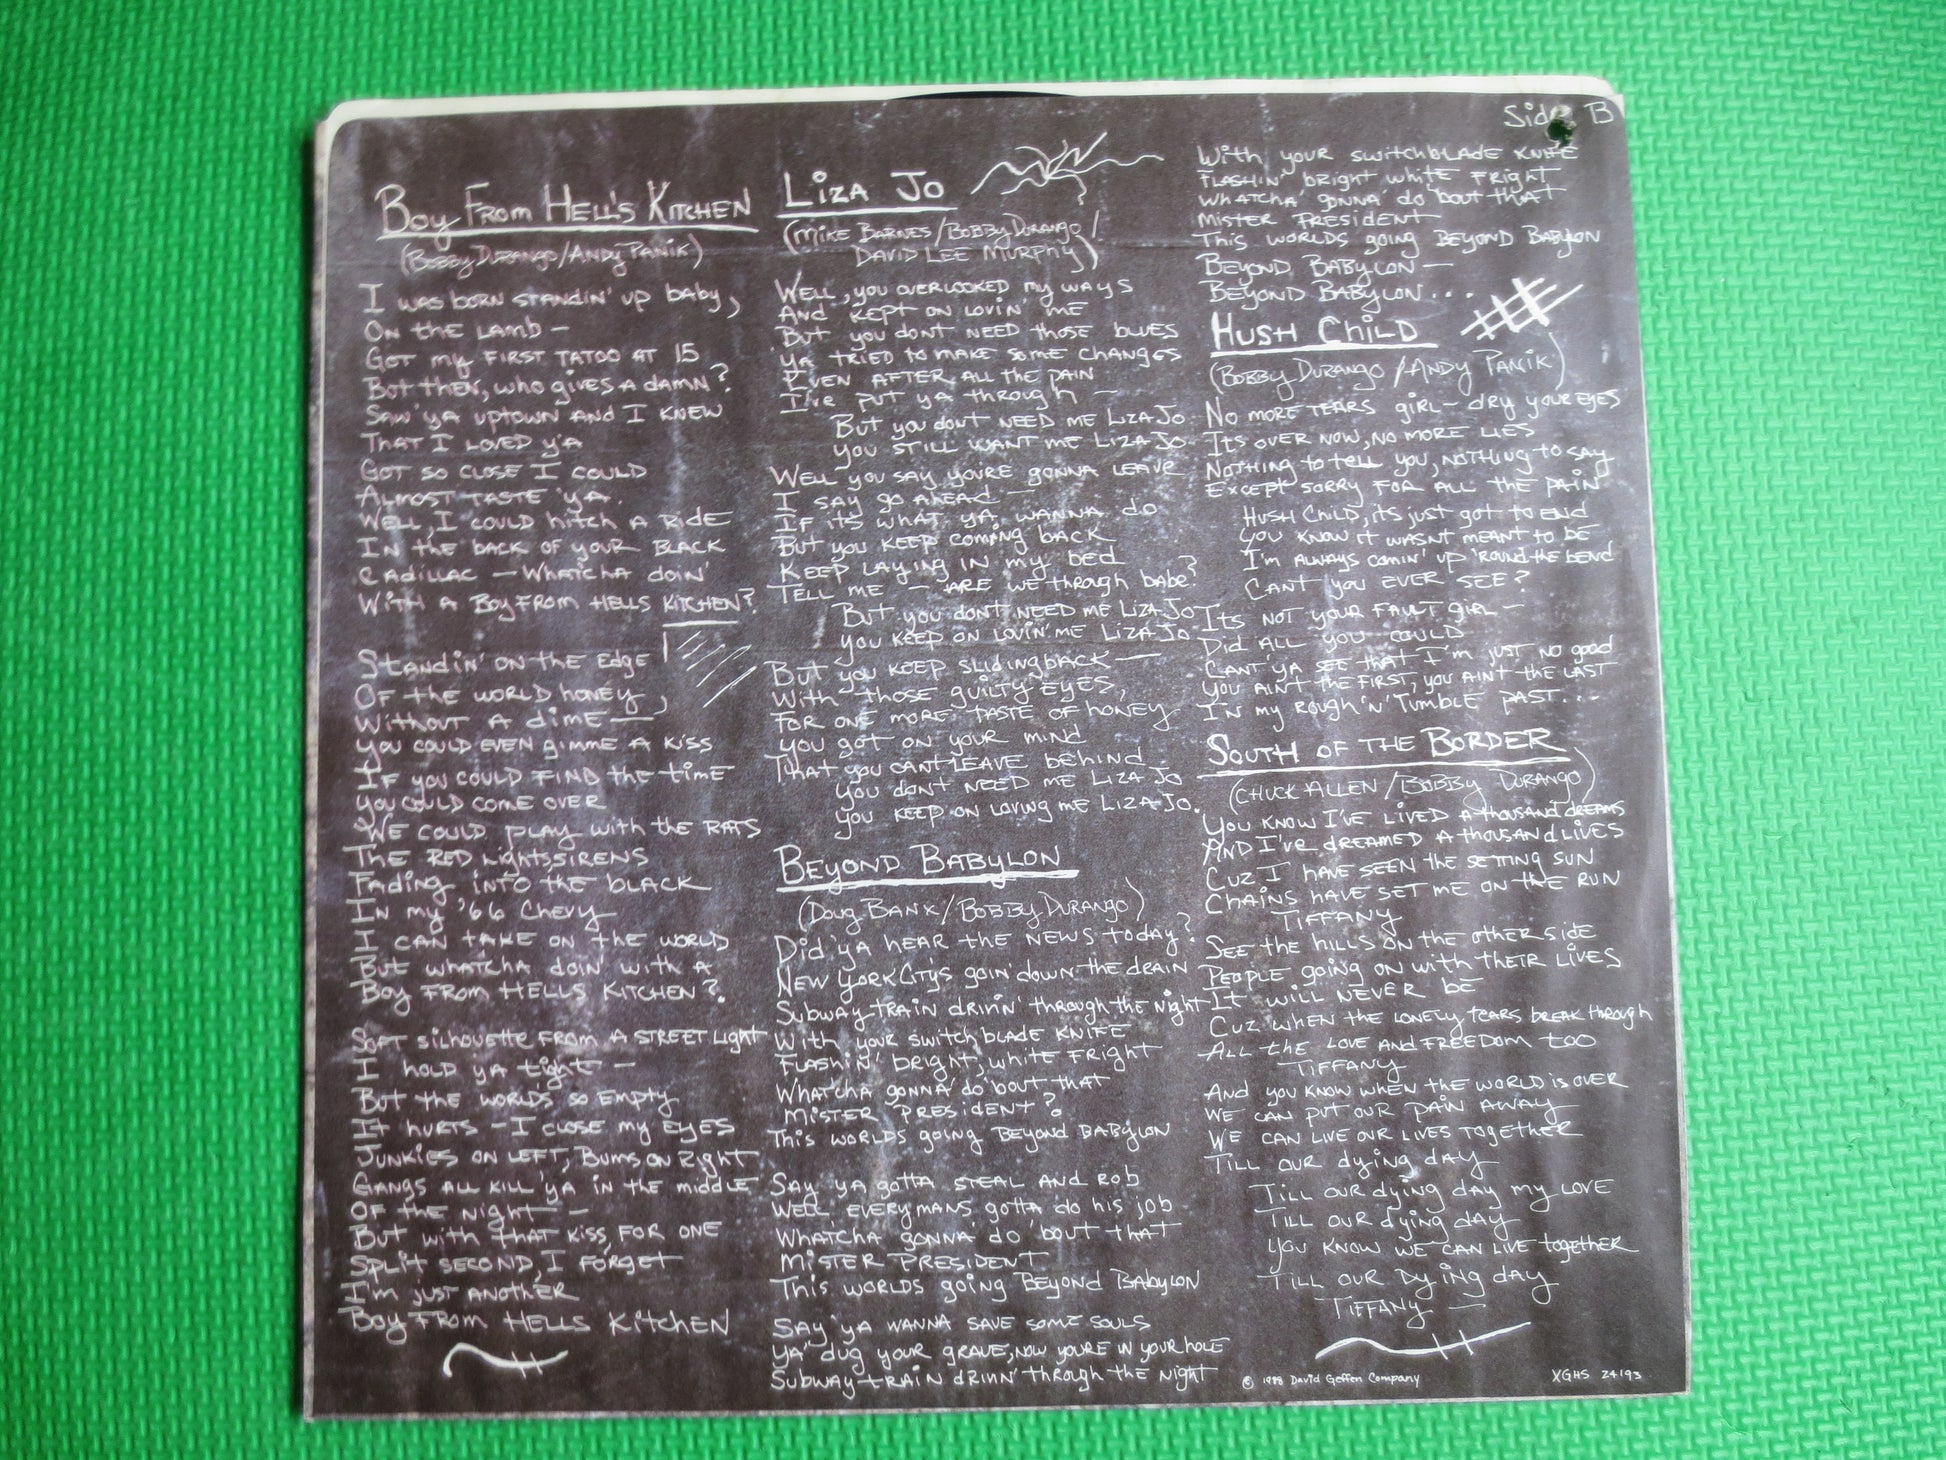 Side B
Boy From Hell's Kitchen
(Bobby Durango/Andy Panik)
I was born standin' up baby,
On the lamb —
Got my first tatoo at 15
But then, who gives a damn?
Saw ya uptown and I knew
That I loved ya
Got so close I could
Almost taste ya.
Well, I could hitch a ride
In the back of your black
Cadillac — Whatcha doin'
With a Boy From Hells Kitchen?
Standin' on the edge
Of the world honey,
Without a dime —
You could even gimme a kiss
If you could find the time
You could come over
We could play with the rats
The red lights sirens
Fading into the black
In my '66 Chevy
I can take on the world
But whatcha doin' with a
Boy From Hells Kitchen?
Soft silhouette from a street light
I hold ya tight —
But the world's so empty
It hurts – I close my eyes
Junkies on left, Bums on right
Gangs all kill ya in the middle
Of the night —
But with that kiss, for one
Split second, I forget
I'm just another
Boy From Hells Kitchen
Liza Jo
(Mike Barnes/Bobby Durango/
David Lee Murphy)
Well, you overlooked my ways
And kept on lovin' me
But you dont need those blues
Ya tried to make some changes
Even after all the pain
I've put ya through —
But you dont need me Liza Jo
You still want me Liza Jo
Well you say youre gonna leave
I say go ahead —
If its what ya wanna do
But you keep coming back
Keep laying in my bed
Tell me — are we through babe?
But you dont need me Liza Jo
You keep on lovin' me Liza Jo
But you keep sliding back —
With those guilty eyes,
For one more taste of honey
You got on your mind
That you cant leave behind
You dont need me Liza Jo
You keep on loving me Liza Jo.
Beyond Babylon
(Doug Banx/Bobby Durango)
Did ya hear the news today?
New York City's goin' down the drain
Subway train drivin' through the night
With your switchblade knife
Flashin' bright, white fright
Whatcha' gonna' do 'bout that
Mister President?
This worlds going Beyond Babylon
Say ya gotta steal and rob
Well everymans gotta do his job
Whatcha gonna' do 'bout that
Mister President
This worlds going Beyond Babylon
Say 'ya wanna save some souls
Ya' dug your grave, now youre in your hole
Subway train drivin' through the night
With your switchblade knife
Flashin' bright white fright
Whatcha' gonna' do 'bout that
Mister President
This worlds going Beyond Babylon
Beyond Babylon —
Beyond Babylon...
Hush Child
(Bobby Durango/Andy Panik)
No more tears girl – dry your eyes
Its over now, no more lies
Nothing to tell you, nothing to say
Except sorry for all the pain
Hush Child, its just got to end
You know it wasnt meant to be
I'm always comin' up 'round the bend
Cant you ever see?
Its not your fault girl —
Did all you could
Cant 'ya see that I'm just no good
You aint the first, you aint the last
In my rough 'n' tumble past...
South of the Border
(Chuck Allen/Bobby Durango)
You know I've lived a thousand dreams
And I've dreamed a thousand lives
Cuz I have seen the setting sun
Chains have set me on the run
Tiffany
See the hills on the other side
People going on with their lives
It will never be
Cuz when the lonely tears break through
All the love and freedom too
Tiffany
And you know when the world is over
We can put our pain away
We can live our lives together
Till our dying day
Till our dying day my love
Till our dying day
You know we can live together
Till our dying day
Tiffany —
© 1988 David Geffen Company
XGHS 24193